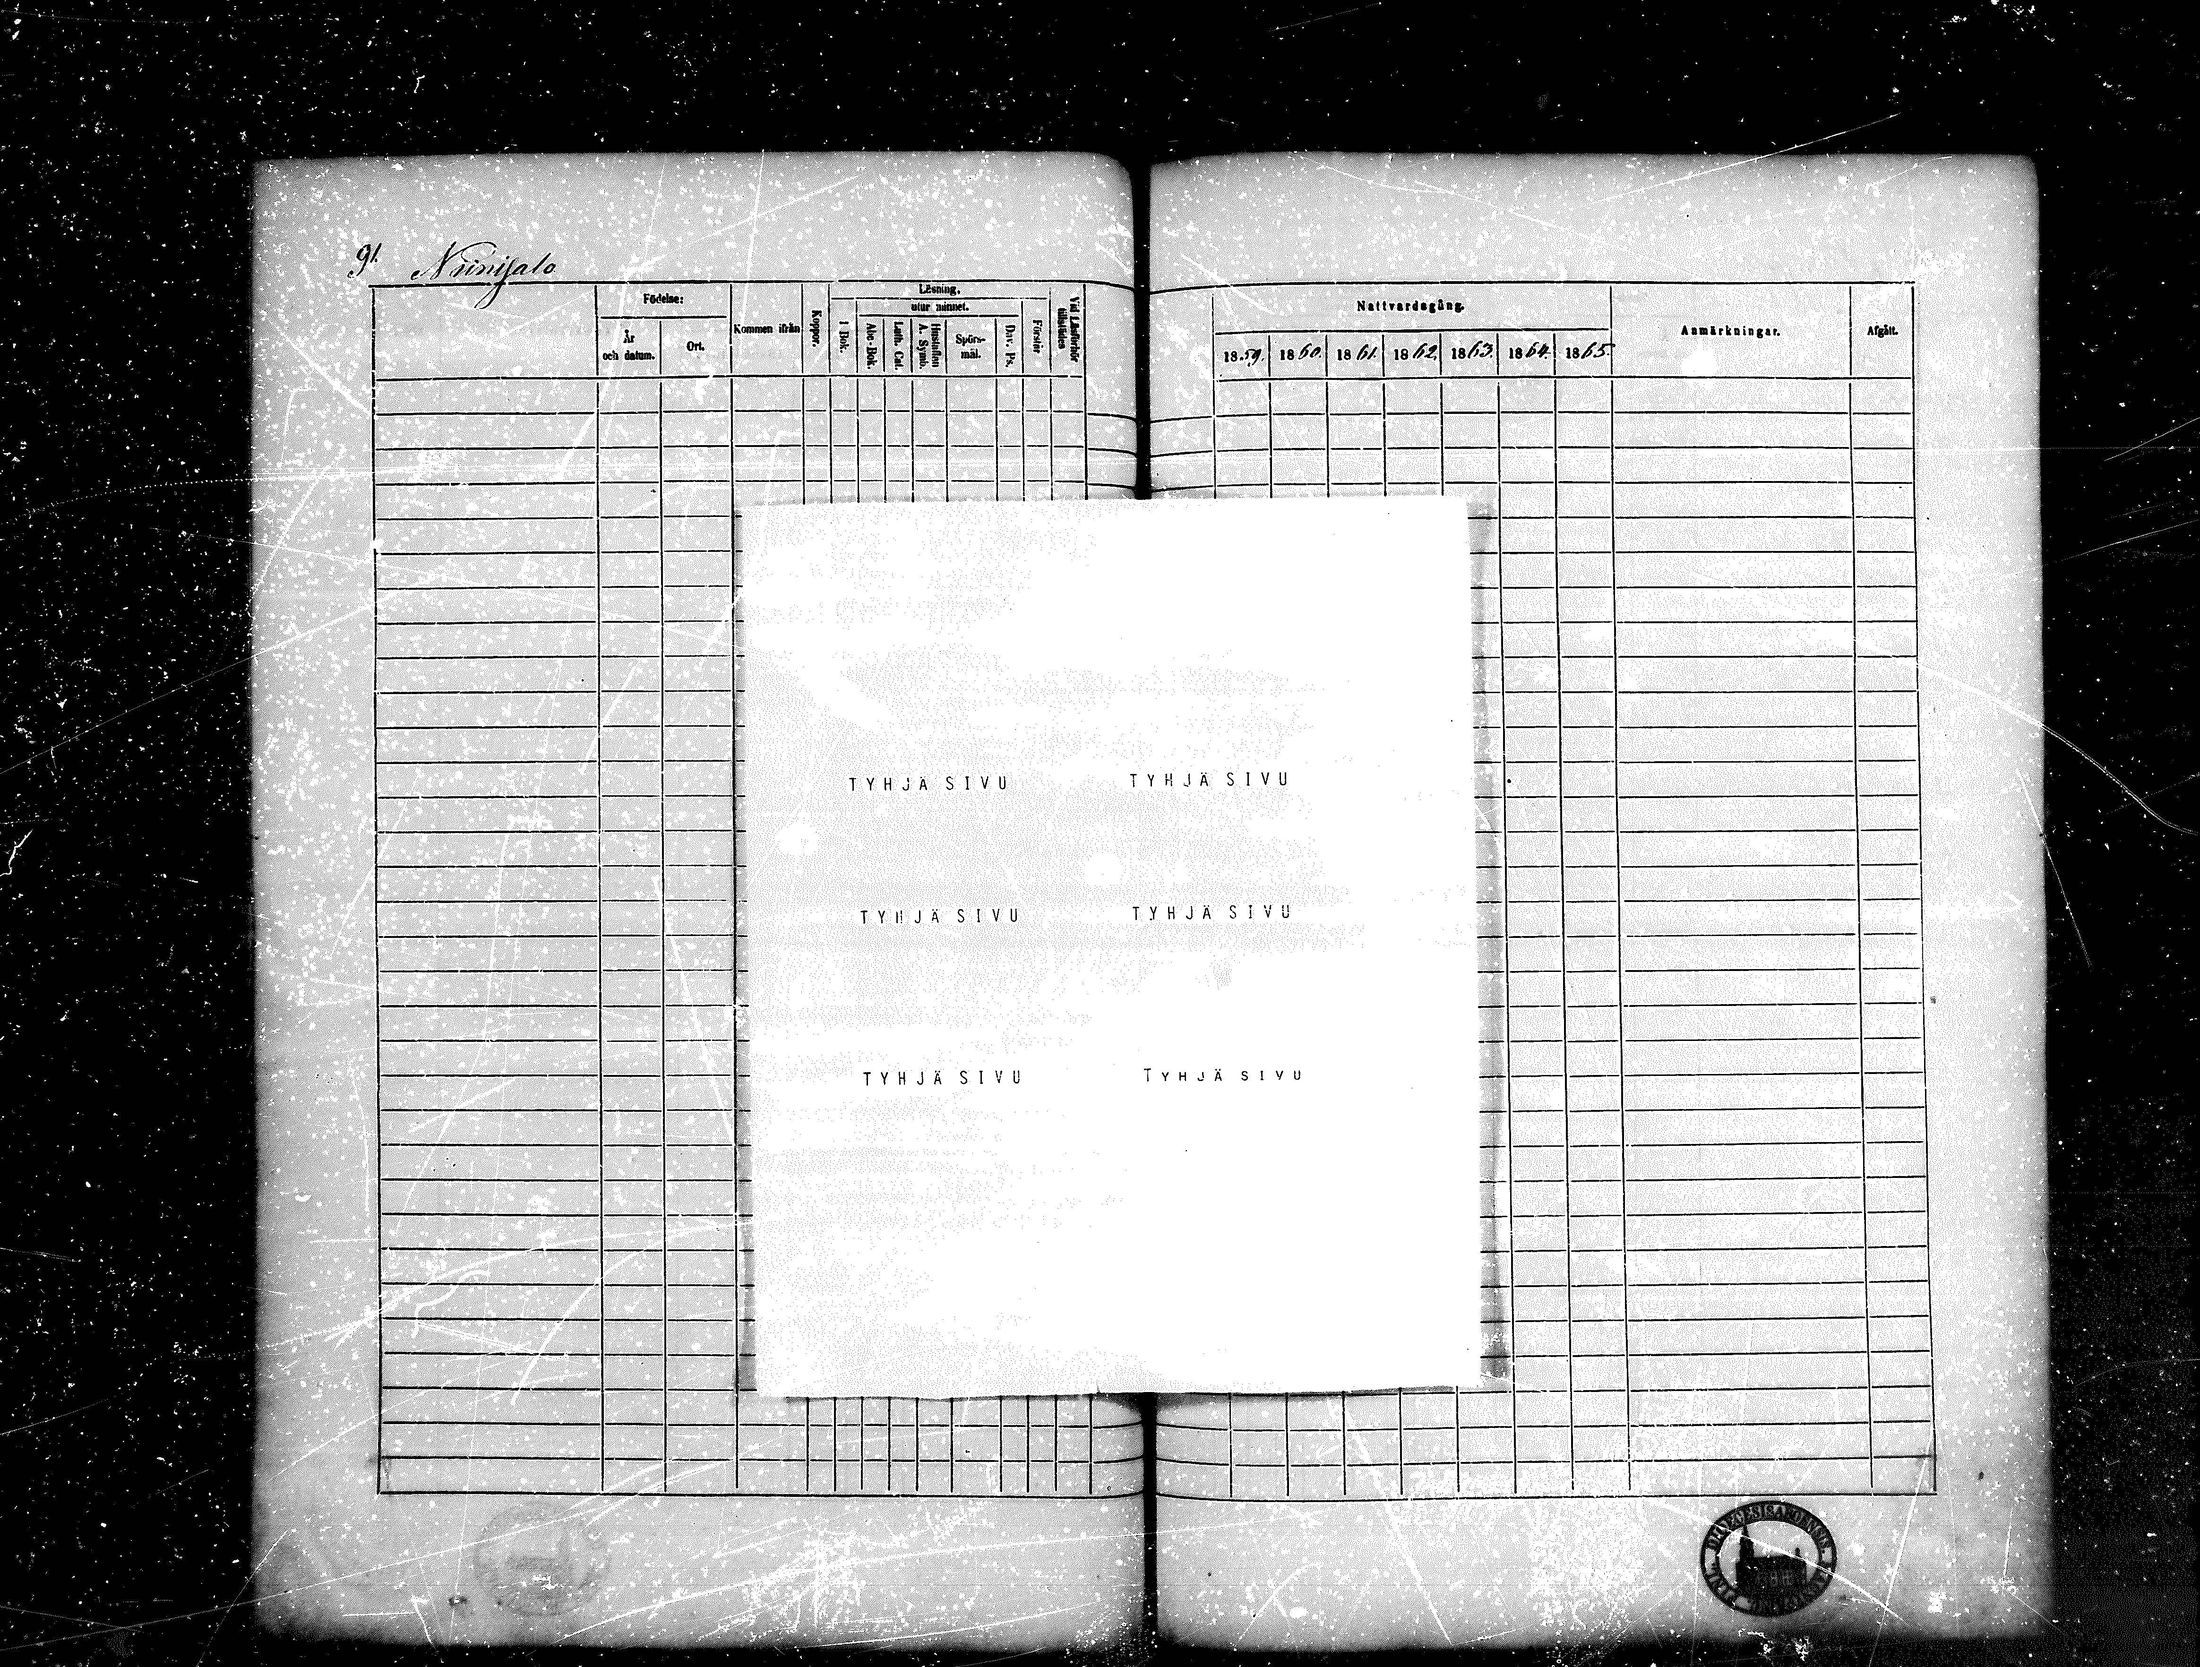 91. Niinisalo
Födelse:
År och datum.
Ort.
Kommen ifrån
Koppor.
Läsning.
utur minnet.
I Bok.
Abc-Bok.
Luth. Cat.
Hustaflan A. Symb.
Spörs-mål.
Dav. Ps.
Förstår
Vid Läsförhör tillstädes
Nattvardsgång.
1859. 1860. 1861. 1862. 1863. 1864. 1865.
Anmärkningar.
Afgått.
TYHJÄ SIVU TYHJÄ SIVU
TYHJÄ SIVU TYHJÄ SIVU
TYHJÄ SIVU TYHJÄ SIVU